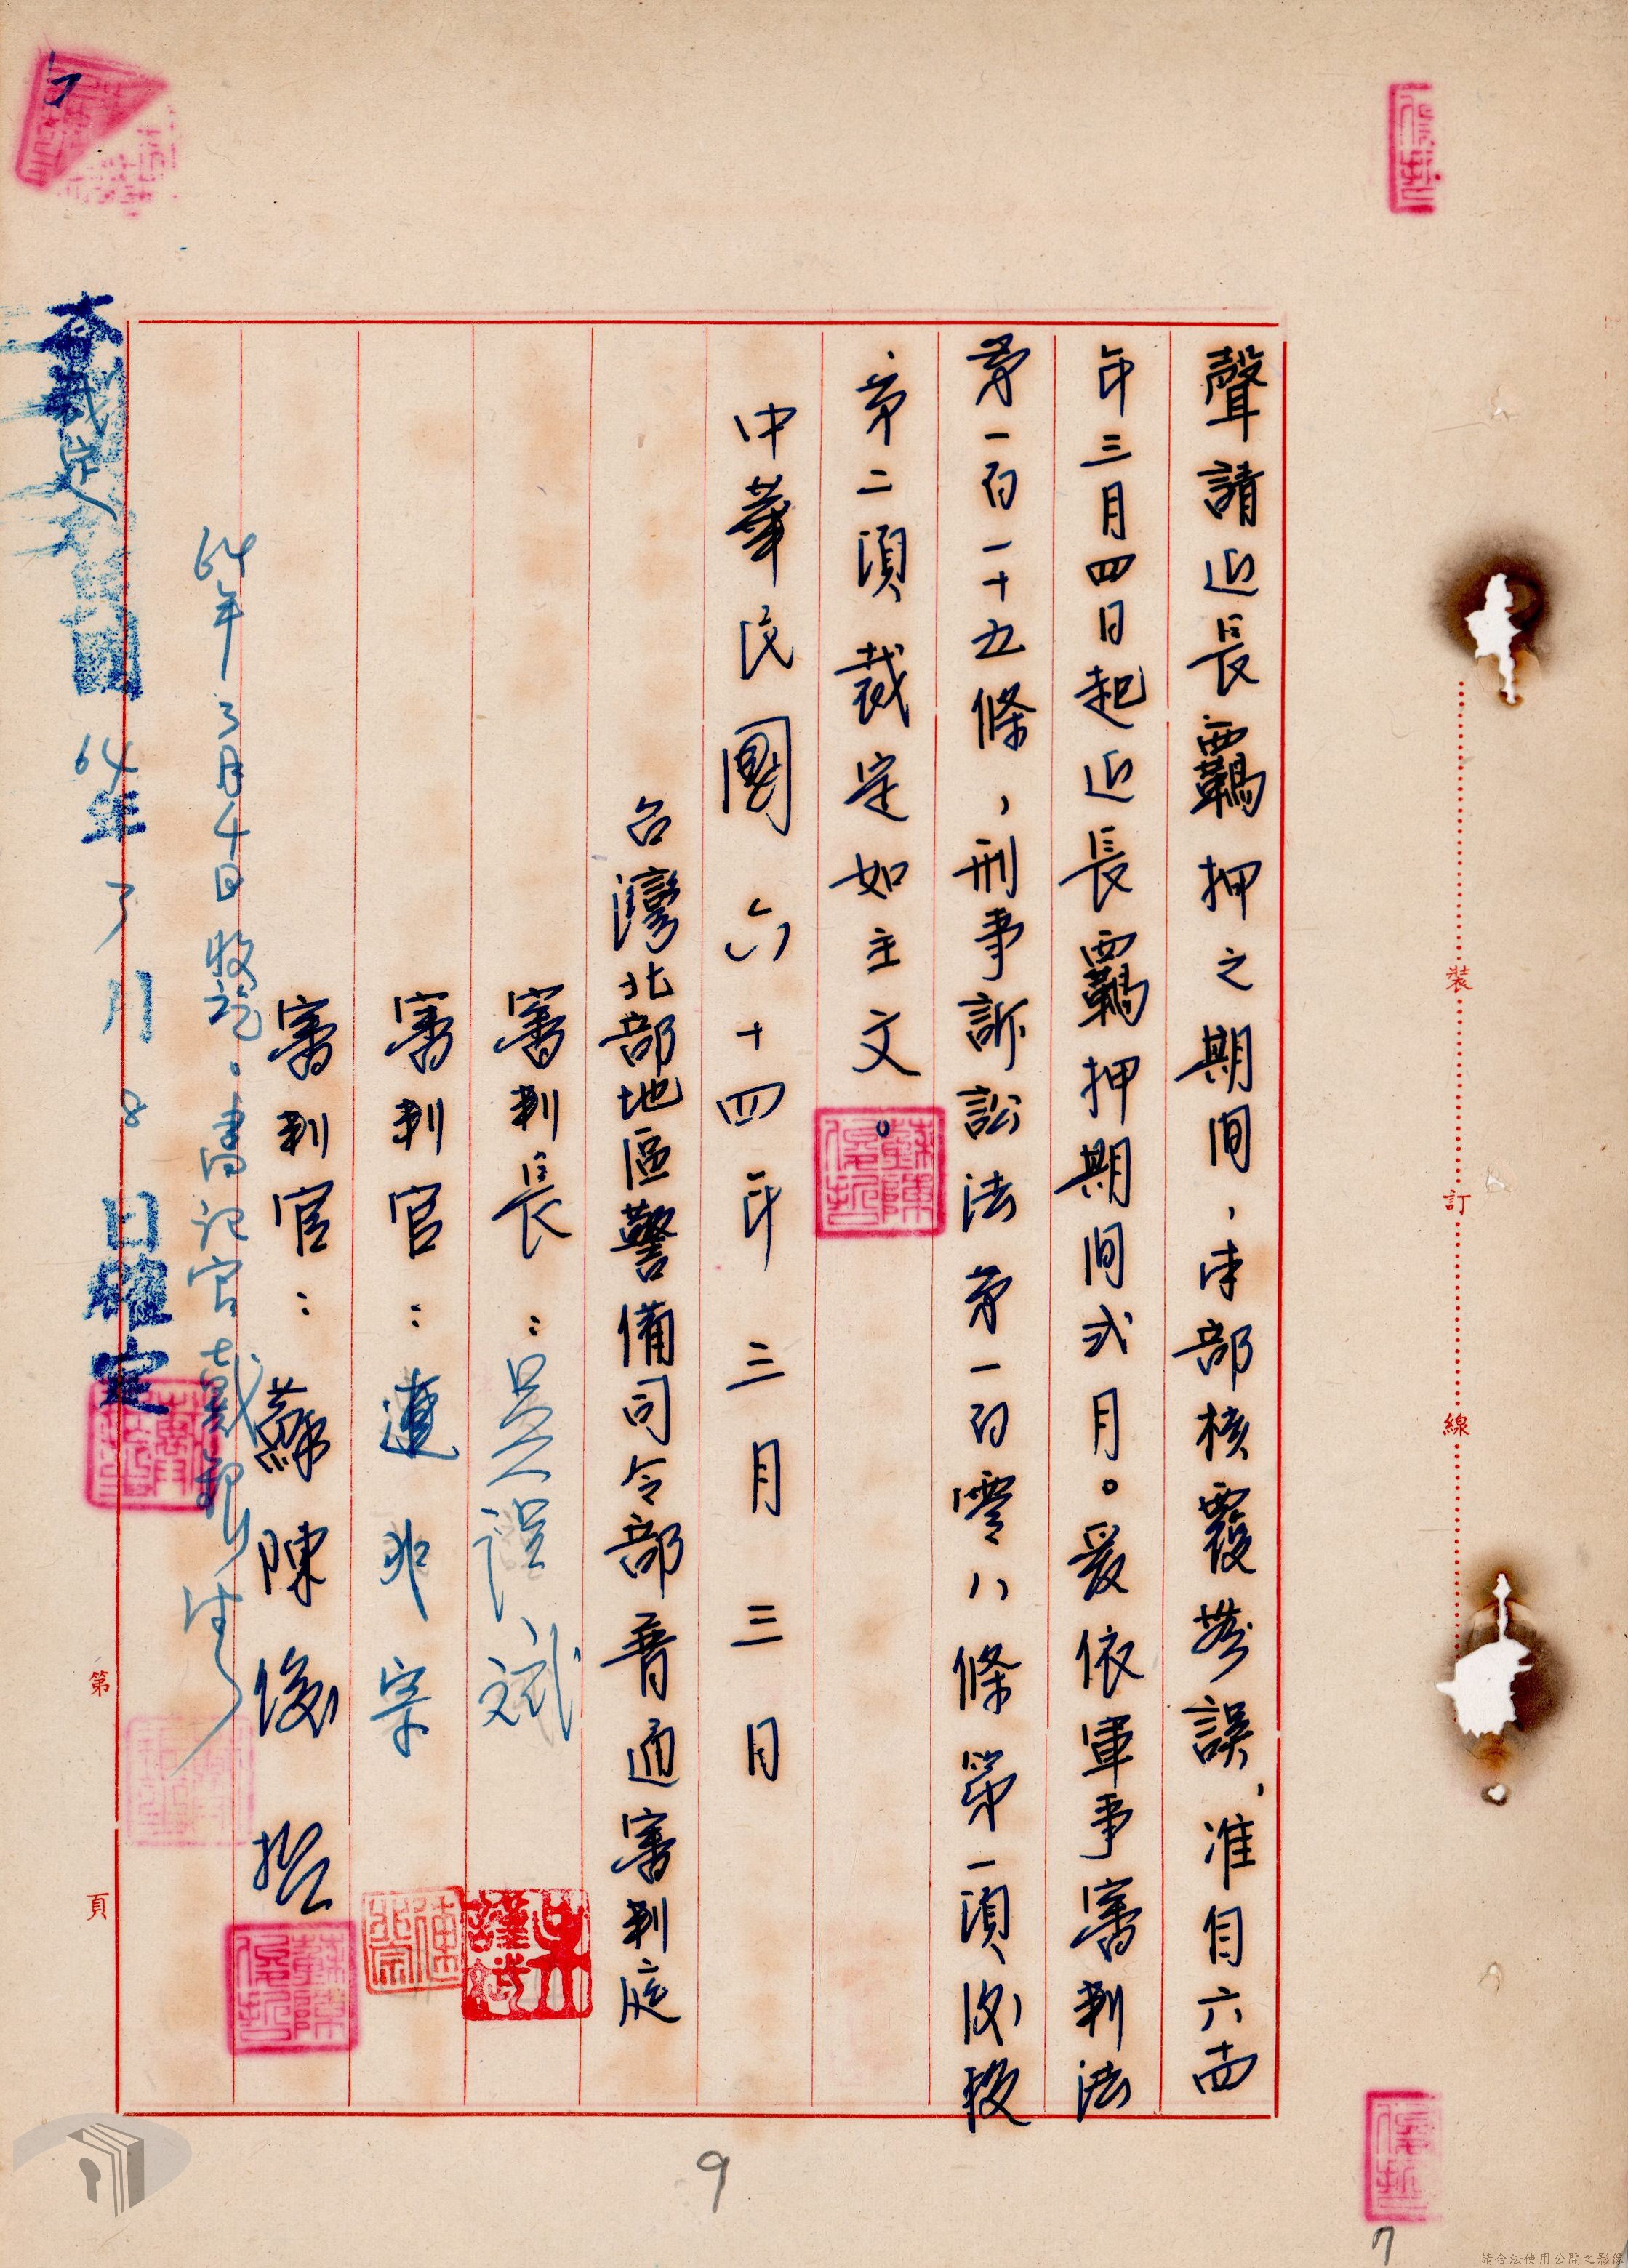 聲請延長羈押之期間，本部核覆無誤，准自六十四
年三月四日起延長羈押期間弍月。爰依軍事審判法
第一百一十五條，刑事訴訟法第一百零八條第一項後段
、第二項裁定如主文。
中華民國六十四年三月三日
台灣北部地區警備司令部普通審判庭
審判長：吳謹斌
審判官：連非宗
審判官：蘇陳俊哲
64年3月4日收訖。書記官戴
本裁定 國64年3月8日確定
第 頁
裝
訂
線
9
7
請合法使用公開之影像